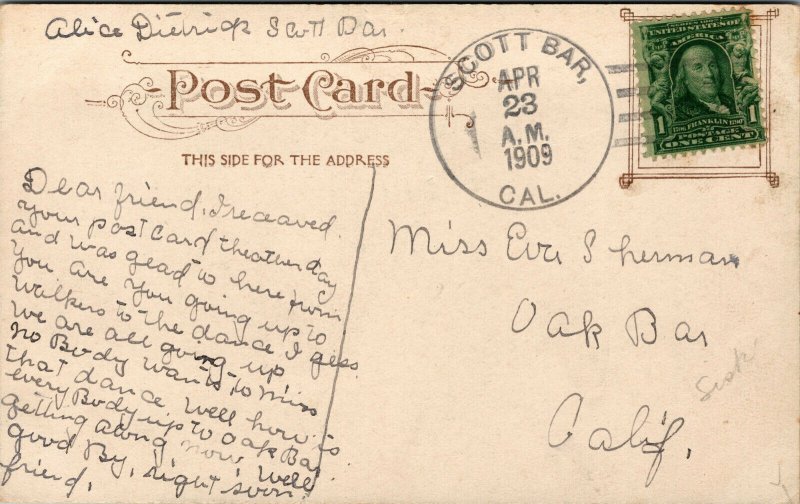 Alice Dietrick Scott Bar
Post Card
THIS SIDE FOR THE ADDRESS
SCOTT BAR,
APR
23
A.M.
1909
CAL.
SERIES 1902
UNITED STATES OF
AMERICA
1 1
1706 FRANKLIN 1790
POSTAGE
ONE CENT
Dear friend, I receaved
your post card theother day
and was glad to here from
you are you going up to
Walkers to the dance I gess
we are all going up
no Body wants to miss
that dance Well how is
every Body up to Oak Bar
getting along now Well
good By, right soon
friend,
Miss Eva Sherman
Oak Bar
Calif,